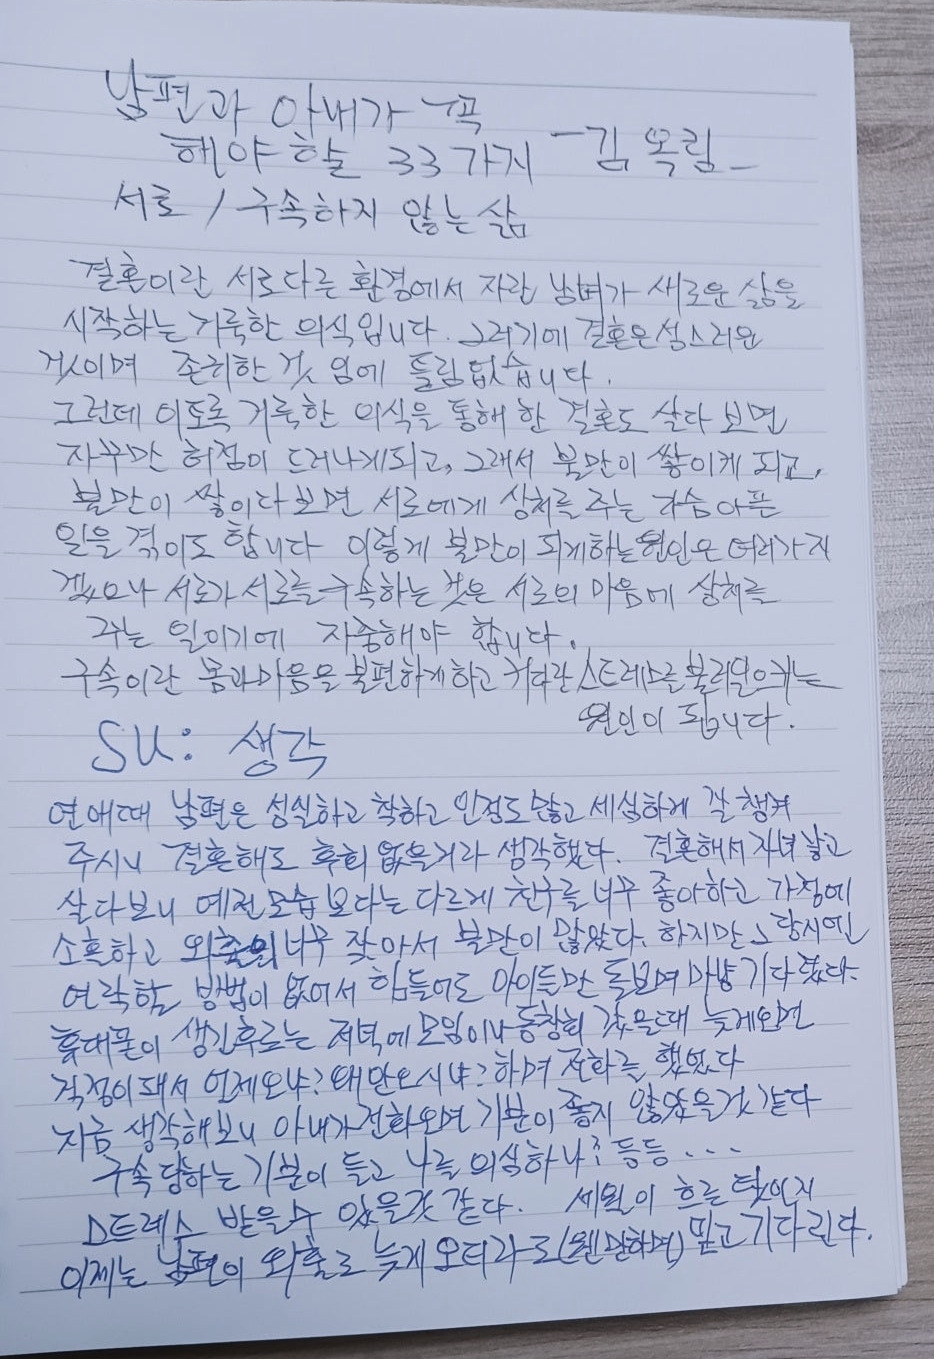 남편과 아내가 꼭
해야 할 33가지 -김옥림-
서로 / 구속하지 않는 삶
결혼이란 서로다른 환경에서 자란 남녀가 새로운 삶을
시작하는 거룩한 의식입니다. 그러기에 결혼은 성스러운
것이며 존귀한 것 임에 틀림없습니다.
그런데 이토록 거룩한 의식을 통해 한 결혼도 살다 보면
자꾸만 허점이 드러나게되고, 그래서 불만이 쌓이게 되고,
불만이 쌓이다 보면 서로에게 상처를 주는 가슴아픈
일을 겪이도 합니다 이렇게 불만이 되게하는 원인은 여러가지
겠으나 서로가 서로를 구속하는 것은 서로의 마음에 상처를
주는 일이기에 자중해야 합니다.
구속이란 몸과마음을 불편하게하고 커다란 스트레스를 불러일으키는
원인이 됩니다.
SU: 생각
연애때 남편은 성실하고 착하고 인정도 많고 세심하게 잘 챙겨
주시니 결혼해도 후회 없을거라 생각했다. 결혼해서 자녀 낳고
살다보니 예전모습보다는 다르게 친구를 너무 좋아하고 가정에
소홀하고 외출이 너무 잦아서 불만이 많았다. 하지만 그 당시엔
연락할 방법이 없어서 힘들어도 아이들만 돌보며 마냥 기다렸다.
휴대폰이 생긴후로는 저녁에 모임이나 동창회 갔을때 늦게오면
걱정이 돼서 언제오냐? 왜안오시냐? 하며 전화를 했었다
지금 생각해보니 아내가 전화오면 기분이 좋지 않았을것 같다
구속 당하는 기분이 들고 나를 의심하나? 등등 ...
스트레스 받을수 있을것 같다. 세월이 흐른 탓인지
이제는 남편이 외출로 늦게 오더라도 (웬만하면) 믿고 기다린다.